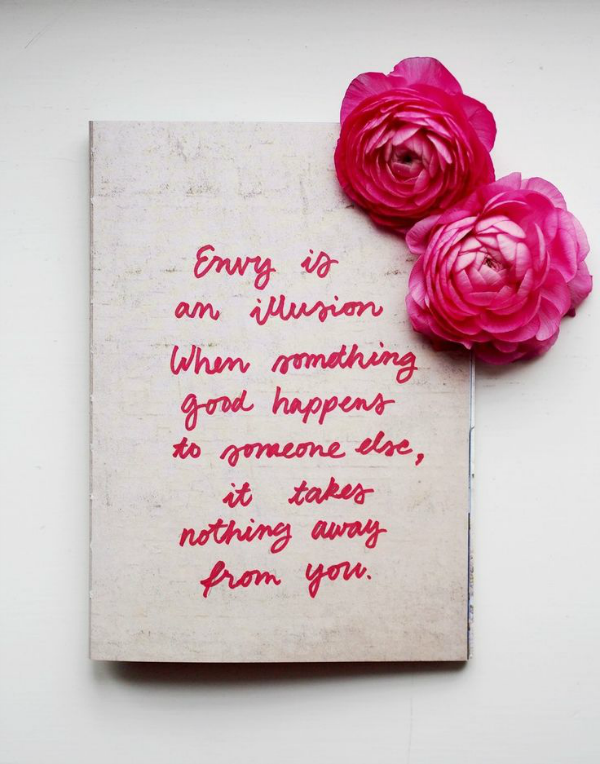 Envy is
an illusion
When something
good happens
to someone else,
it takes
nothing away
from you.